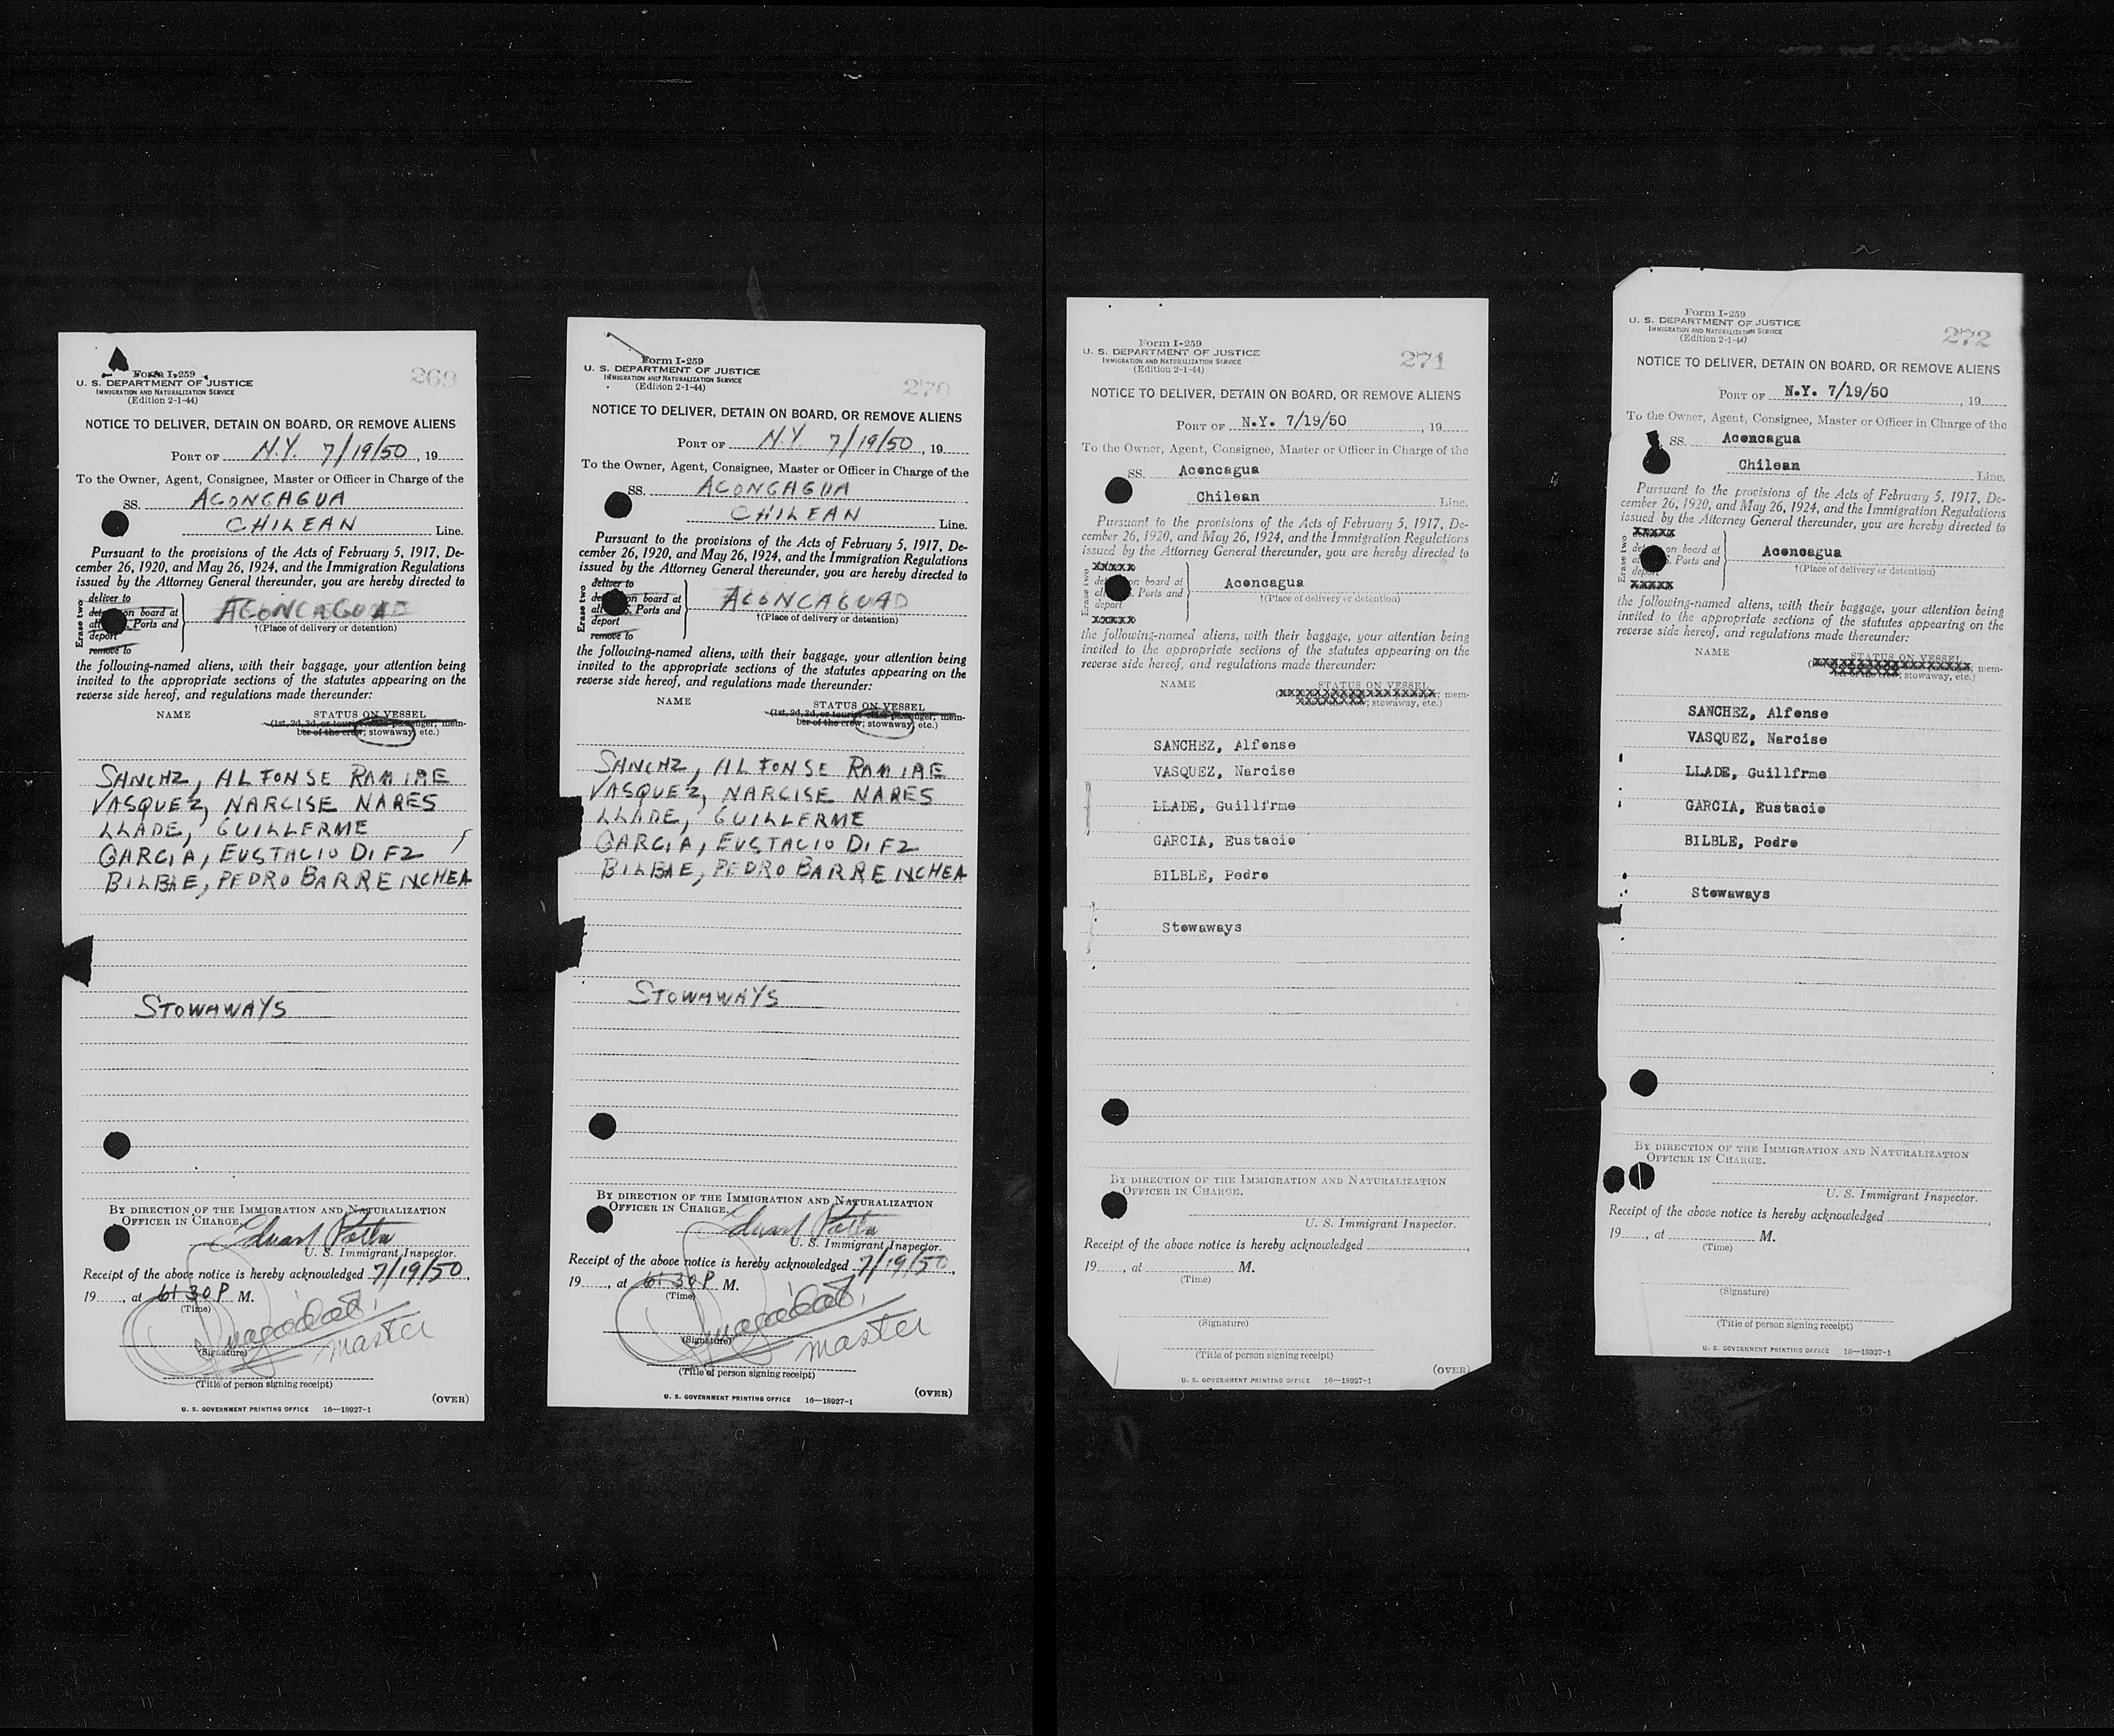 Form I-259
U. S. DEPARTMENT OF JUSTICE
IMMIGRATION AND NATURALIZATION SERVICE
(Edition 2-1-44)
269
NOTICE TO DELIVER, DETAIN ON BOARD, OR REMOVE ALIENS
PORT OF N.Y. 7/19/50, 19
To the Owner, Agent, Consignee, Master or Officer in Charge of the
SS. ACONCAGUA
CHILEAN Line.
Pursuant to the provisions of the Acts of February 5, 1917, De-
cember 26, 1920, and May 26, 1924, and the Immigration Regulations
issued by the Attorney General thereunder, you are hereby directed to
Erase two
deliver to
on board at
Ports and
deport
remove to
ACONCAGUA
†(Place of delivery or detention)
the following-named aliens, with their baggage, your attention being
invited to the appropriate sections of the statutes appearing on the
reverse side hereof, and regulations made thereunder:
NAME STATUS ON VESSEL
(1st, 2d, 3d, or tourist class passenger; mem-
ber of the crew; stowaway, etc.)
SANCHZ, ALFONSE RAMIRE
VASQUEZ, NARCISE NARES
LLADE, GUILLERME
GARCIA, EUSTACIO DIFZ
BILBAE, PEDRO BARREINCHEA
STOWAWAYS
BY DIRECTION OF THE IMMIGRATION AND NATURALIZATION
OFFICER IN CHARGE.
U. S. Immigrant Inspector.
Receipt of the above notice is hereby acknowledged 7/19/50,
19, at 6:30 P M.
(Time)
(Signature)
master
(Title of person signing receipt)
(OVER)
U. S. GOVERNMENT PRINTING OFFICE 16—18927-1
Form I-259
U. S. DEPARTMENT OF JUSTICE
IMMIGRATION AND NATURALIZATION SERVICE
(Edition 2-1-44)
270
NOTICE TO DELIVER, DETAIN ON BOARD, OR REMOVE ALIENS
PORT OF N.Y. 7/19/50, 19
To the Owner, Agent, Consignee, Master or Officer in Charge of the
SS. ACONCAGUA
CHILEAN Line.
Pursuant to the provisions of the Acts of February 5, 1917, De-
cember 26, 1920, and May 26, 1924, and the Immigration Regulations
issued by the Attorney General thereunder, you are hereby directed to
Erase two
deliver to
on board at
Ports and
deport
remove to
ACONCAGUA
†(Place of delivery or detention)
the following-named aliens, with their baggage, your attention being
invited to the appropriate sections of the statutes appearing on the
reverse side hereof, and regulations made thereunder:
NAME STATUS ON VESSEL
(1st, 2d, 3d, or tourist class passenger; mem-
ber of the crew; stowaway, etc.)
SANCHZ, ALFONSE RAMIRE
VASQUEZ, NARCISE NARES
LLADE, GUILLERME
GARCIA, EUSTACIO DIFZ
BILBAE, PEDRO BARREINCHEA
STOWAWAYS
BY DIRECTION OF THE IMMIGRATION AND NATURALIZATION
OFFICER IN CHARGE.
U. S. Immigrant Inspector.
Receipt of the above notice is hereby acknowledged 7/19/50,
19, at 6:30 P. M.
(Time)
(Signature)
master
(Title of person signing receipt)
(OVER)
U. S. GOVERNMENT PRINTING OFFICE 16—18927-1
Form I-259
U. S. DEPARTMENT OF JUSTICE
IMMIGRATION AND NATURALIZATION SERVICE
(Edition 2-1-44)
271
NOTICE TO DELIVER, DETAIN ON BOARD, OR REMOVE ALIENS
PORT OF N.Y. 7/19/50, 19
To the Owner, Agent, Consignee, Master or Officer in Charge of the
SS. Aconcagua
Chilean Line.
Pursuant to the provisions of the Acts of February 5, 1917, De-
cember 26, 1920, and May 26, 1924, and the Immigration Regulations
issued by the Attorney General thereunder, you are hereby directed to
Erase two
xxxxx
on board at
Ports and
deport
xxxxx
Aconcagua
†(Place of delivery or detention)
the following-named aliens, with their baggage, your attention being
invited to the appropriate sections of the statutes appearing on the
reverse side hereof, and regulations made thereunder:
NAME STATUS ON VESSEL
mem-
stowaway, etc.)
SANCHEZ, Alfonse
VASQUEZ, Narcise
LLADE, Guillfrme
GARCIA, Eustacio
BILBLE, Pedro
Stowaways
BY DIRECTION OF THE IMMIGRATION AND NATURALIZATION
OFFICER IN CHARGE.
U. S. Immigrant Inspector.
Receipt of the above notice is hereby acknowledged,
19, at M.
(Time)
(Signature)
(Title of person signing receipt)
(OVER)
U. S. GOVERNMENT PRINTING OFFICE 16—18927-1
Form I-259
U. S. DEPARTMENT OF JUSTICE
IMMIGRATION AND NATURALIZATION SERVICE
(Edition 2-1-44)
272
NOTICE TO DELIVER, DETAIN ON BOARD, OR REMOVE ALIENS
PORT OF N.Y. 7/19/50, 19
To the Owner, Agent, Consignee, Master or Officer in Charge of the
SS. Aconcagua
Chilean Line.
Pursuant to the provisions of the Acts of February 5, 1917, De-
cember 26, 1920, and May 26, 1924, and the Immigration Regulations
issued by the Attorney General thereunder, you are hereby directed to
Erase two
xxxxx
on board at
Ports and
deport
xxxxx
Aconcagua
†(Place of delivery or detention)
the following-named aliens, with their baggage, your attention being
invited to the appropriate sections of the statutes appearing on the
reverse side hereof, and regulations made thereunder:
NAME STATUS ON VESSEL
mem-
ber of the crew; stowaway, etc.)
SANCHEZ, Alfonse
VASQUEZ, Narcise
LLADE, Guillfrme
GARCIA, Eustacio
BILBLE, Pedro
Stowaways
BY DIRECTION OF THE IMMIGRATION AND NATURALIZATION
OFFICER IN CHARGE.
U. S. Immigrant Inspector.
Receipt of the above notice is hereby acknowledged,
19, at M.
(Time)
(Signature)
(Title of person signing receipt)
U. S. GOVERNMENT PRINTING OFFICE 16—18927-1